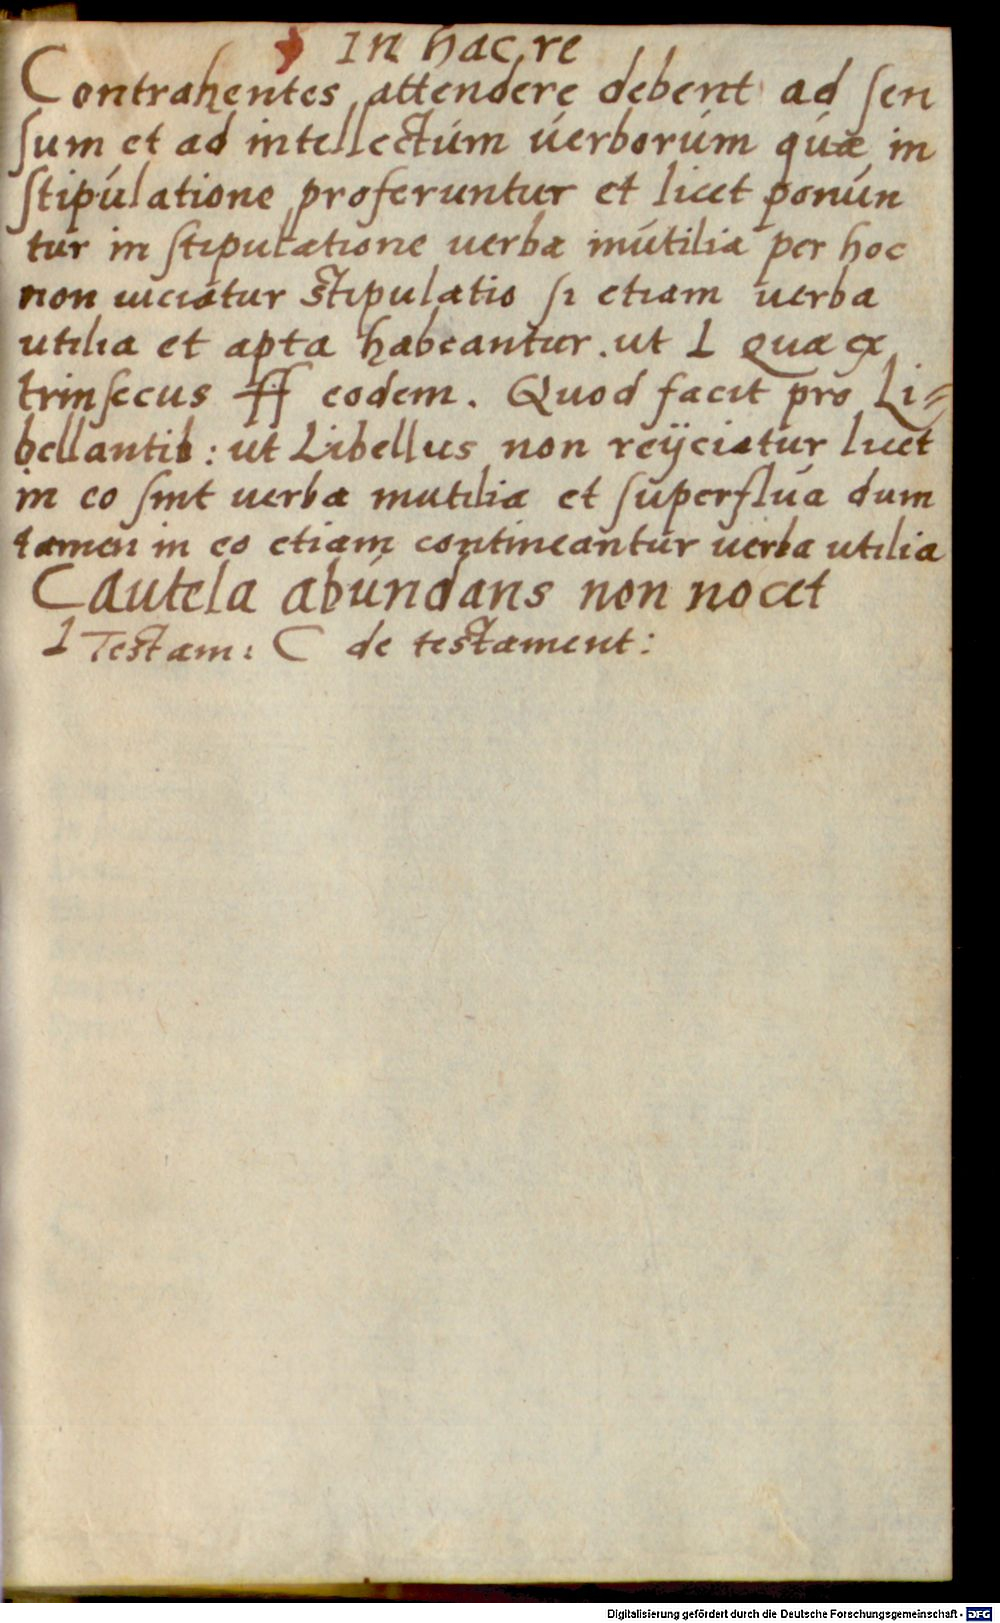 In hac re
Contrahentes attendere debent ad sen
sum et ad intellectum verborum quæ in
stipulatione proferuntur et licet ponun
tur in stipulatione verba inutilia per hoc
non viciatur stipulatio si etiam verba
utilia et apta habeantur. ut L Quæ ex
trinsecus ff eodem. Quod facit pro Li-
bellantib: ut Libellus non reijciatur licet
in eo sint verba inutilia et superflua dum
tamen in eo etiam contineantur verba utilia
Cautela abundans non nocet
L Testam: C de testament:
Digitalisierung gefördert durch die Deutsche Forschungsgemeinschaft - DFG